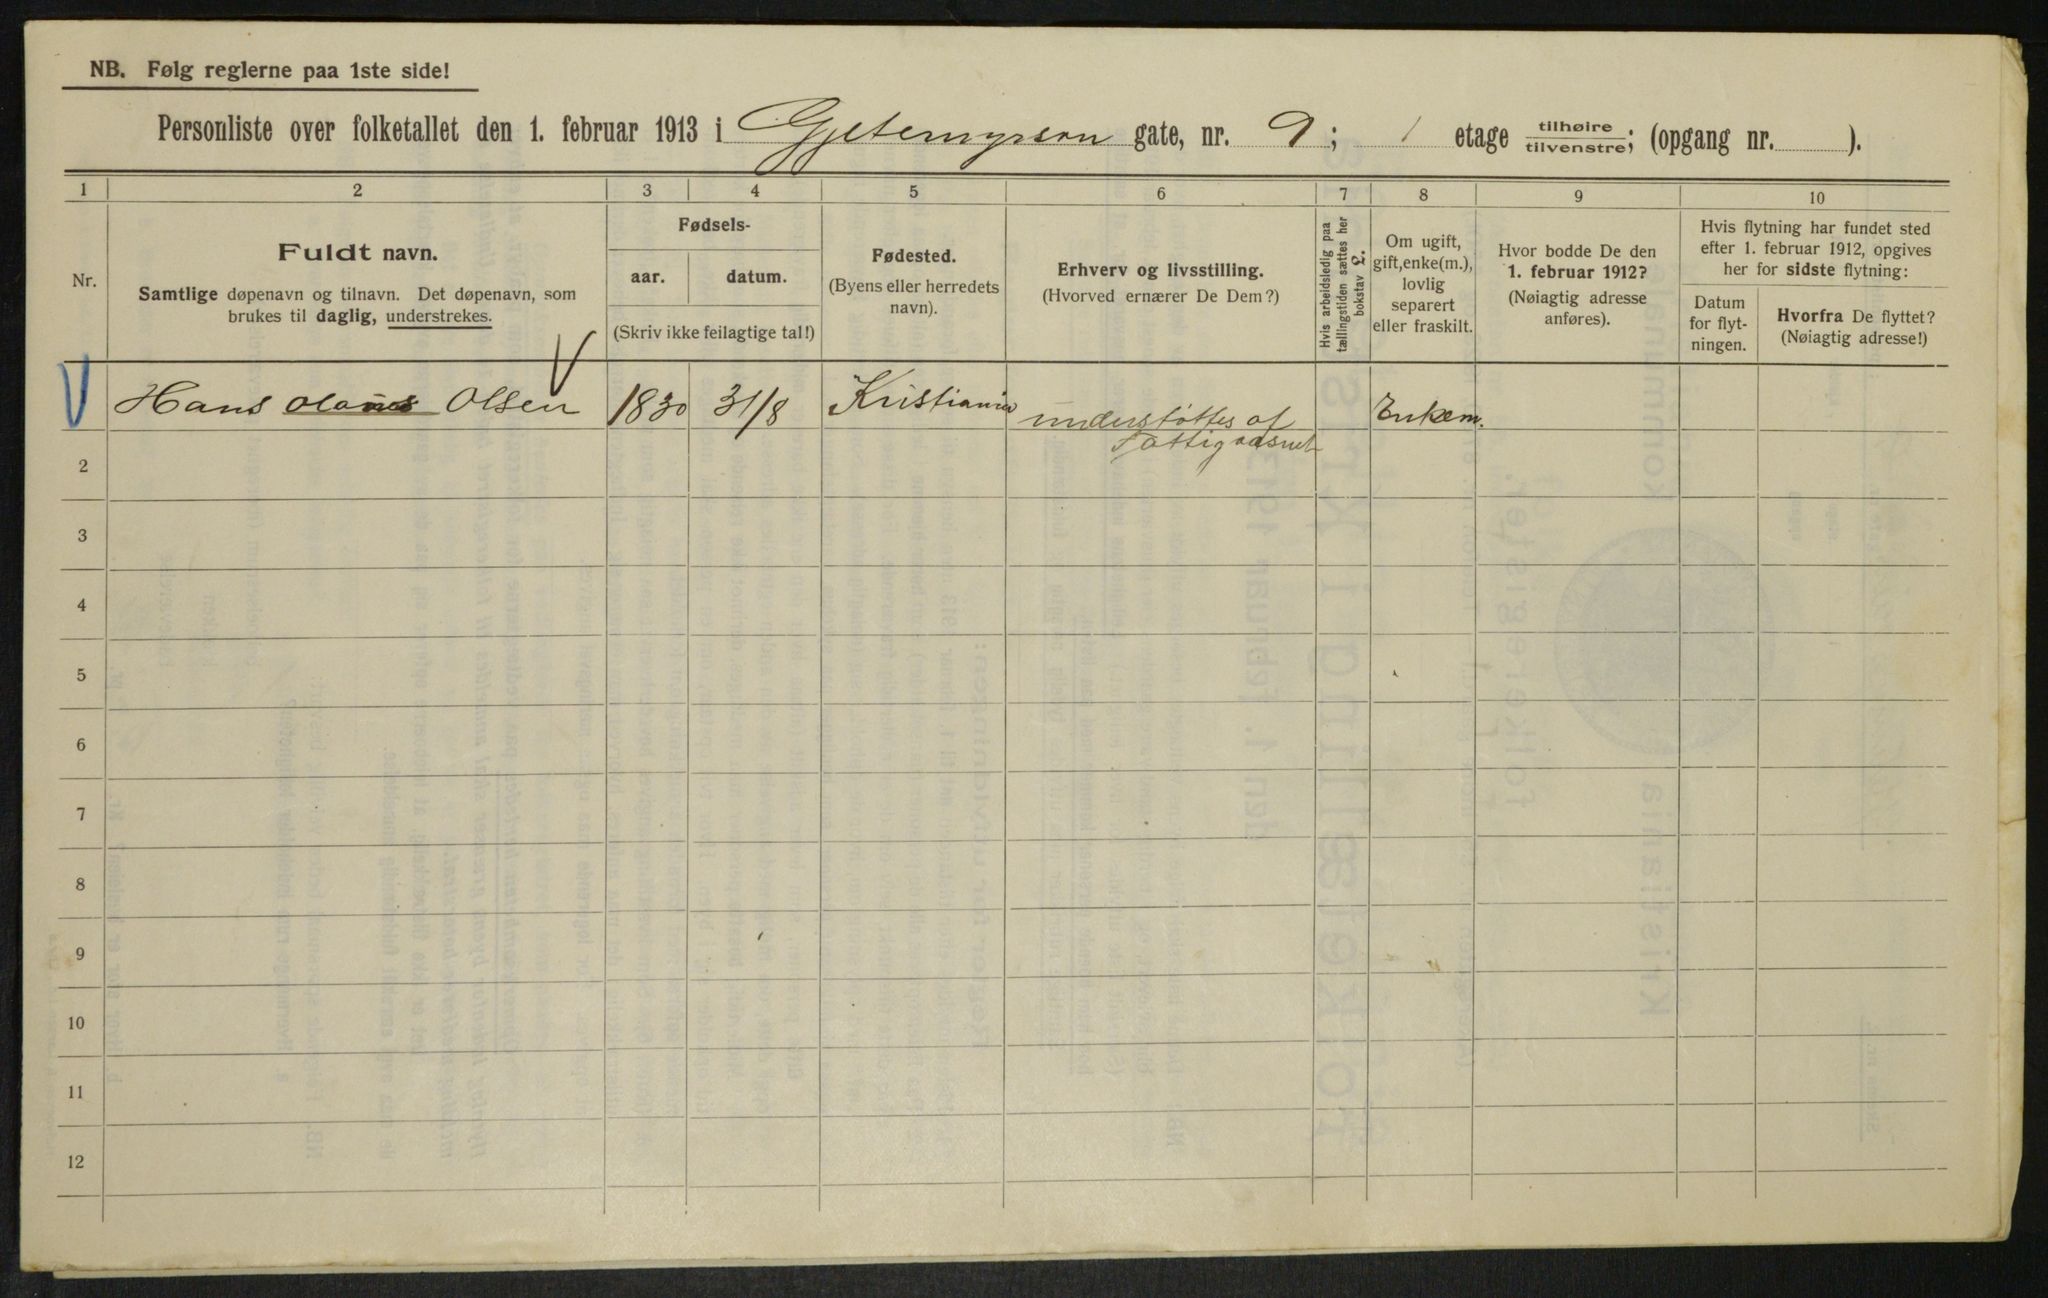 NB. Følg reglerne paa 1ste side!
Personliste over folketallet den 1. februar 1913 i Gjetemyrsvn gate, nr. 9; 1 etage tilhøire/tilvenstre; (opgang nr. ).
1 2 3 4 5 6 7 8 9 10
Nr.
Fuldt navn.
Samtlige døpenavn og tilnavn. Det døpenavn, som
brukes til daglig, understrekes.
Fødsels-
aar. datum.
(Skriv ikke feilagtige tal!)
Fødested.
(Byens eller herredets
navn).
Erhverv og livsstilling.
(Hvorved ernærer De Dem?)
Hvis arbeidsledig paa
tællingstiden sættes her
bokstav L.
Om ugift,
gift, enke(m.),
lovlig
separert
eller fraskilt.
Hvor bodde De den
1. februar 1912?
(Nøiagtig adresse
anføres).
Hvis flytning har fundet sted
efter 1. februar 1912, opgives
her for sidste flytning:
Datum
for flyt-
ningen.
Hvorfra De flyttet?
(Nøiagtig adresse!)
Hans Olsen 1830 31/8 Kristiania understøttes af Enkem.
2
3
4
5
6
7
8
9
10
11
12